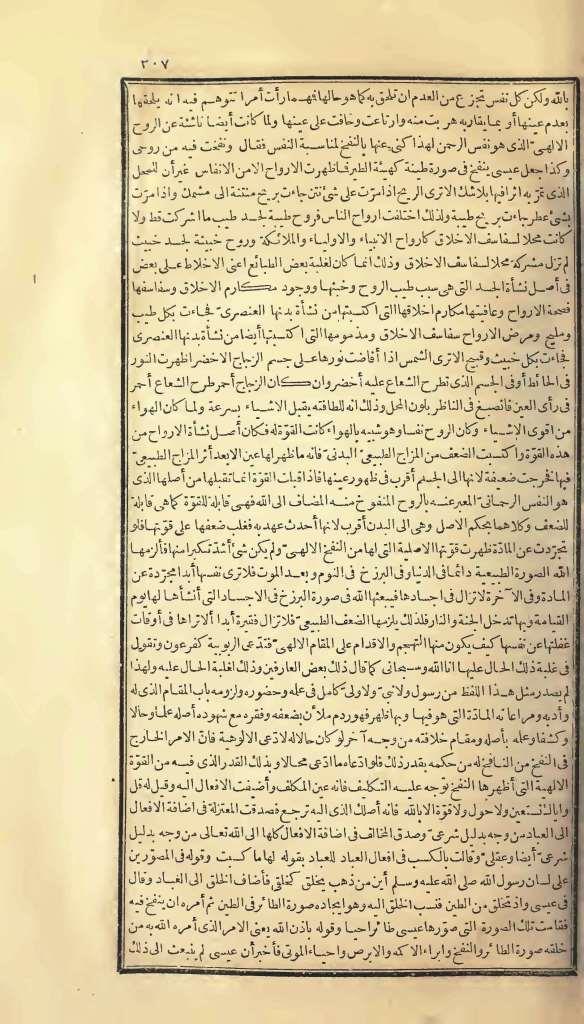 ٣٠٧
بالله ولكن كل نفس تجزع من العدم ان تلحق به كما هو حالها فهما رأت أمرا تتوهم فيه انه يلحقها
بعدم عينها أو بما يقاربه هربت منه وارتاعت وخافت على عينها ولما كانت أيضا ناشئة عن الروح
الالهى الذى هو نفس الرحمن لهذا كنى عنها بالنفخ لمناسبة النفس فقال ونفخت فيه من روحى
وكذا جعل عيسى ينفخ فى صورة طينة كهيئة الطير فما ظهرت الارواح الا من الانفاس غير أن للمحل
الذى تمر به أثرا فيها بلا شك الا ترى الريح اذا مرت على شئ نتن جاءت بريح منتنة الى مشمك واذا مرت
بشئ عطر جاءت بريح طيبة ولذلك اختلفت ارواح الناس فروح طيبة لجسد طيب ما اشركت قط ولا
كانت محلا لسفاسف الاخلاق كارواح الانبياء والاولياء والملائكة وروح خبيثة لجسد خبيث
لم تزل مشركة محلا لسفاسف الاخلاق وذلك انما كان لغلبة بعض الطبائع اعنى الاخلاط على بعض
فى أصل نشأة الجسد التى هى سبب طيب الروح وخبثها ووجود مكارم الاخلاق وسفاسفها
فصحة الارواح وعافيتها مكارم اخلاقها التى اكتسبتها من نشأة بدنها العنصرى فجاءت بكل طيب
ومليح ومرض الارواح سفاسف الاخلاق ومذمومها التى اكتسبتها أيضا من نشأة بدنها العنصرى
فجاءت بكل خبيث وقبيح الا ترى الشمس اذا أفاضت نورها على جسم الزجاج الاخضر اظهرت النور
فى الحائط أو فى الجسم الذى تطرح الشعاع عليه أخضر وان كان الزجاج أحمر طرح الشعاع أحمر
فى رأى العين فانصبغ فى الناظر بلون المحل وذلك انه للطافته يقبل الاشياء بسرعة ولما كان الهواء
من اقوى الاشياء وكان الروح نفسا وهو شبيه بالهواء كانت القوة له فكان أصل نشأة الارواح من
هذه القوة واكتسبت الضعف من المزاج الطبيعى البدنى فانه ما ظهر لها عين الا بعد أثر المزاج الطبيعى
فيها فخرجت ضعيفة لانها الى الجسم أقرب فى ظهور عينها فاذا قبلت القوة انما تقبلها من أصلها الذى
هو النفس الرحمانى المعبر عنه بالروح المنفوخ منه المضاف الى الله فهى قابلة للقوة كما هى قابلة
للضعف وكلاهما بحكم الاصل وهى الى البدن أقرب لانها أحدث عهد به فغلب ضعفها على قوتها فلو
تجردت عن المادة ظهرت قوتها الاصلية التى لها من النفخ الالهى ولم يكن شئ أشد تكبرا منها فألزمها
الله الصورة الطبيعية دائما فى الدنيا وفى البرزخ فى النوم وبعد الموت فلا ترى نفسها أبدا مجردة عن
المادة وفى الآخرة لا تزال فى اجسادها فيبعثها الله فى صورة البرزخ فى الاجساد التى أنشأها لها يوم
القيامة وبها تدخل الجنة والنار فلذلك يلزمها الضعف الطبيعى فلا تزال فقيرة أبدا ألا تراها فى أوقات
غفلتها عن نفسها كيف يكون منها التهجم والاقدام على المقام الالهى فتدعى الربوبية كفرعون وتقول
فى غلبة ذلك الحال عليها انا الله وسبحانى كما قال ذلك بعض العارفين وذلك لغلبة الحال عليه ولهذا
لم يصدر مثل هذا اللفظ من رسول ولا نبى ولا ولى كامل فى علمه وحضوره ولزومه باب المقام الذى له
وأدبه ومراعاته المادة التى هو فيها وبها ظهر فهو ردم ملآن بضعفه وفقره مع شهوده أصله علما وحالا
وكشفا وعلمه بأصله ومقام خلافته من وجه آخر لو كان حالا له لادعى الالوهية فان الامر الخارج
فى النفخ من النافخ له من حكمه بقدر ذلك فلو ادعاه ما ادعى محالا وبذلك القدر الذى فيه من القوة
الالهية التى أظهرها النفخ توجه عليه التكليف فانه عين المكلف وأضيفت الافعال اليه وقيل له قل
واياك نستعين ولا حول ولا قوة الا بالله فانه أصلك الذى اليه ترجع فصدقت المعتزلة فى اضافة الافعال
الى العباد من وجه بدليل شرعى وصدق المخالف فى اضافة الافعال كلها الى الله تعالى من وجه بدليل
شرعى أيضا وعقلى وقالت بالكسب فى افعال العباد للعباد بقوله لها ما كسبت وقوله فى المصورين
على لسان رسول الله صلى الله عليه وسلم أين من ذهب يخلق كخلقى فأضاف الخلق الى العباد وقال
فى عيسى واذ تخلق من الطين فنسب الخلق اليه وهو ايجاده صورة الطائر فى الطين ثم أمره ان ينفخ فيه
فقامت تلك الصورة التى صورها عيسى طائرا حيا وقوله باذن الله يعنى الامر الذى أمره الله به من
خلقه صورة الطائر والنفخ وابراء الاكمه والابرص واحياء الموتى فأخبر أن عيسى لم ينبعث الى ذلك